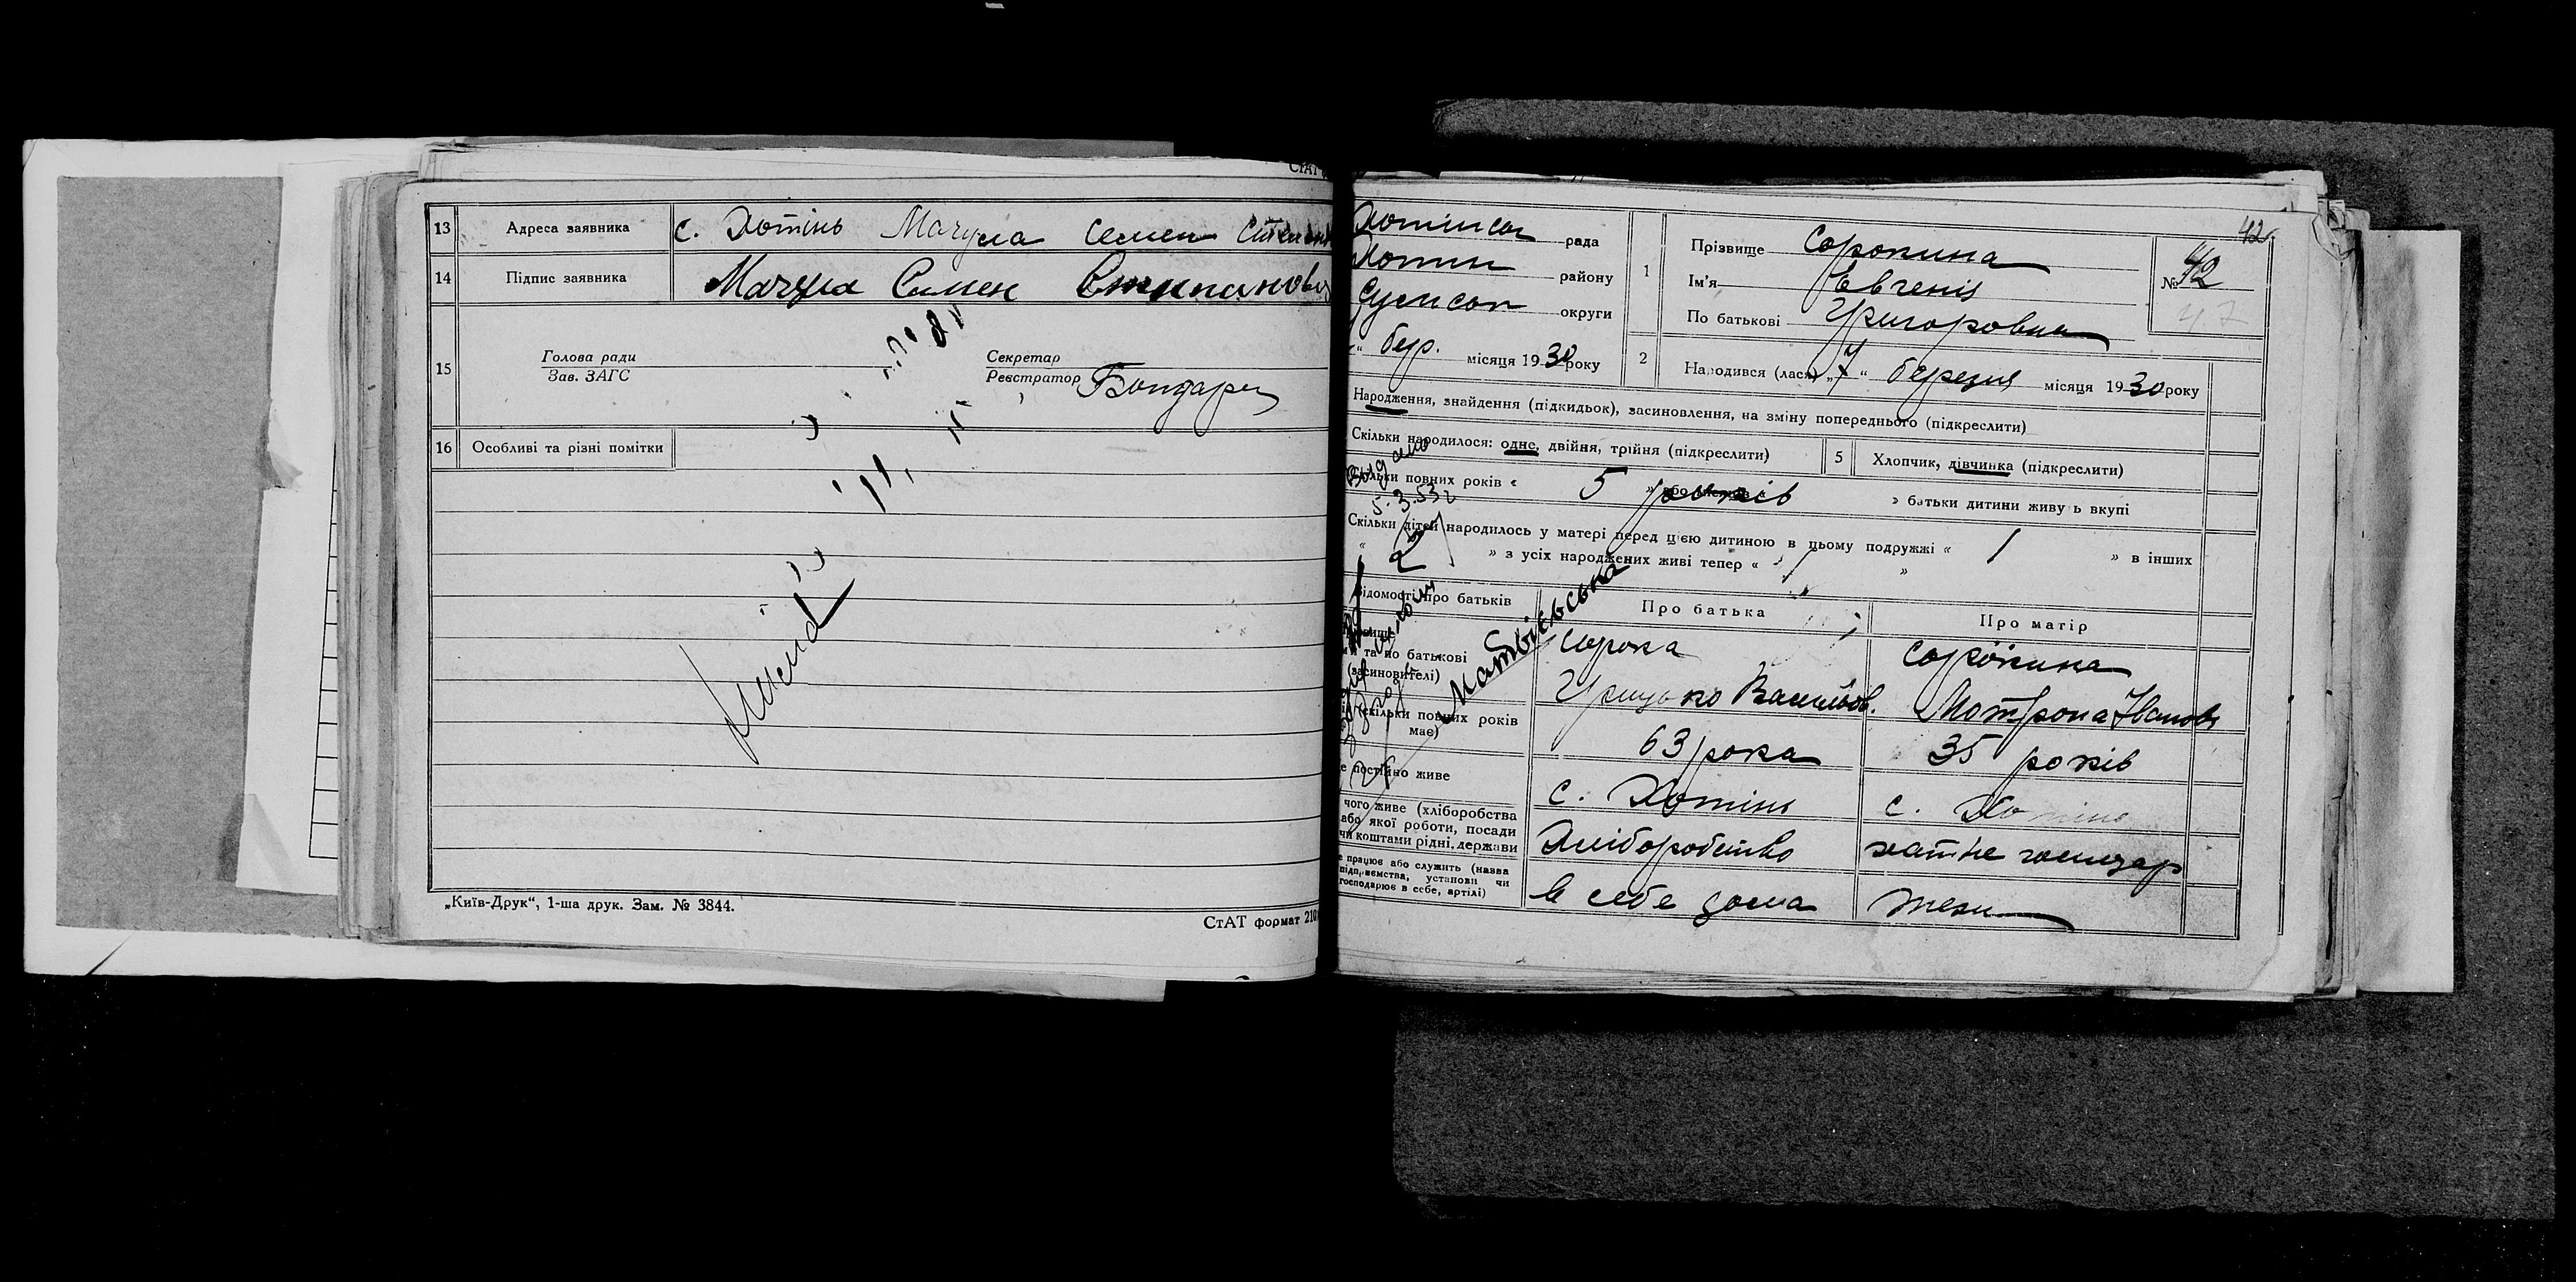 СтАТ
13 Адреса заявника с. Хотінь Мачула Семен Степан
14 Підпис заявника Мачула Семен Степанович
15 Голова ради
Зав. ЗАГС
Секретар
Реєстратор Бондарец
16 Особливі та різні помітки
„Київ-Друк“, 1-ша друк. Зам. № 3844.
СтАТ формат 210
42.
Хотінськ рада
Хотин району
Сумськ округи
“ бер. місяця 1930 року
1 Прізвище Сорокина
Ім'я Євгенія
По батькові Григоровна
№ 42
47
2 Народився (лася) „7“ березня місяця 1930 року
Народження, знайдення (підкидьок), засиновлення, на зміну попереднього (підкреслити)
Скільки народилося: одне, двійня, трійня (підкреслити)
5 Хлопчик, дівчинка (підкреслити)
Видано
5.3.53г
Скільки повних років « 5 років » батьки дитини живуть вкупі
Скільки дітей народилось у матері перед цією дитиною в цьому подружжі « 1 » в інших
« 2 » з усіх народжених живі тепер « »
Матвієвська
Відомості про батьків Про батька Про матір
Прізвище
та по батькові
(засиновителі)
Сорока
Грицько Васильов.
Сорокина
Мотрона Іванов
(скільки повних років
має) 63 рока 35 років
де постійно живе с. Хотінь с. Хотінь
чого живе (хліборобства
або якої роботи, посади
чи коштами рідні, держави
Хліборобство хатне господар
де працює або служить (назва
підприємства, установи чи
господарює в себе, артілі)
в себе дома